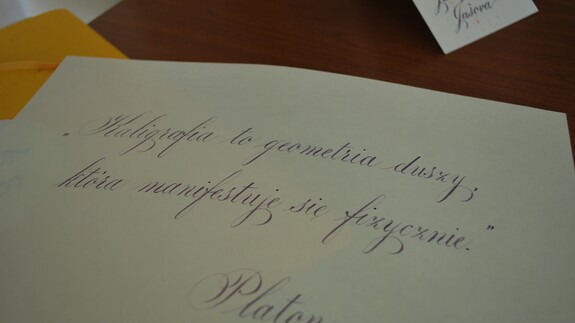 Jašova
„Kaligrafia to geometria duszy,
która manifestuje się fizycznie.”
Platon